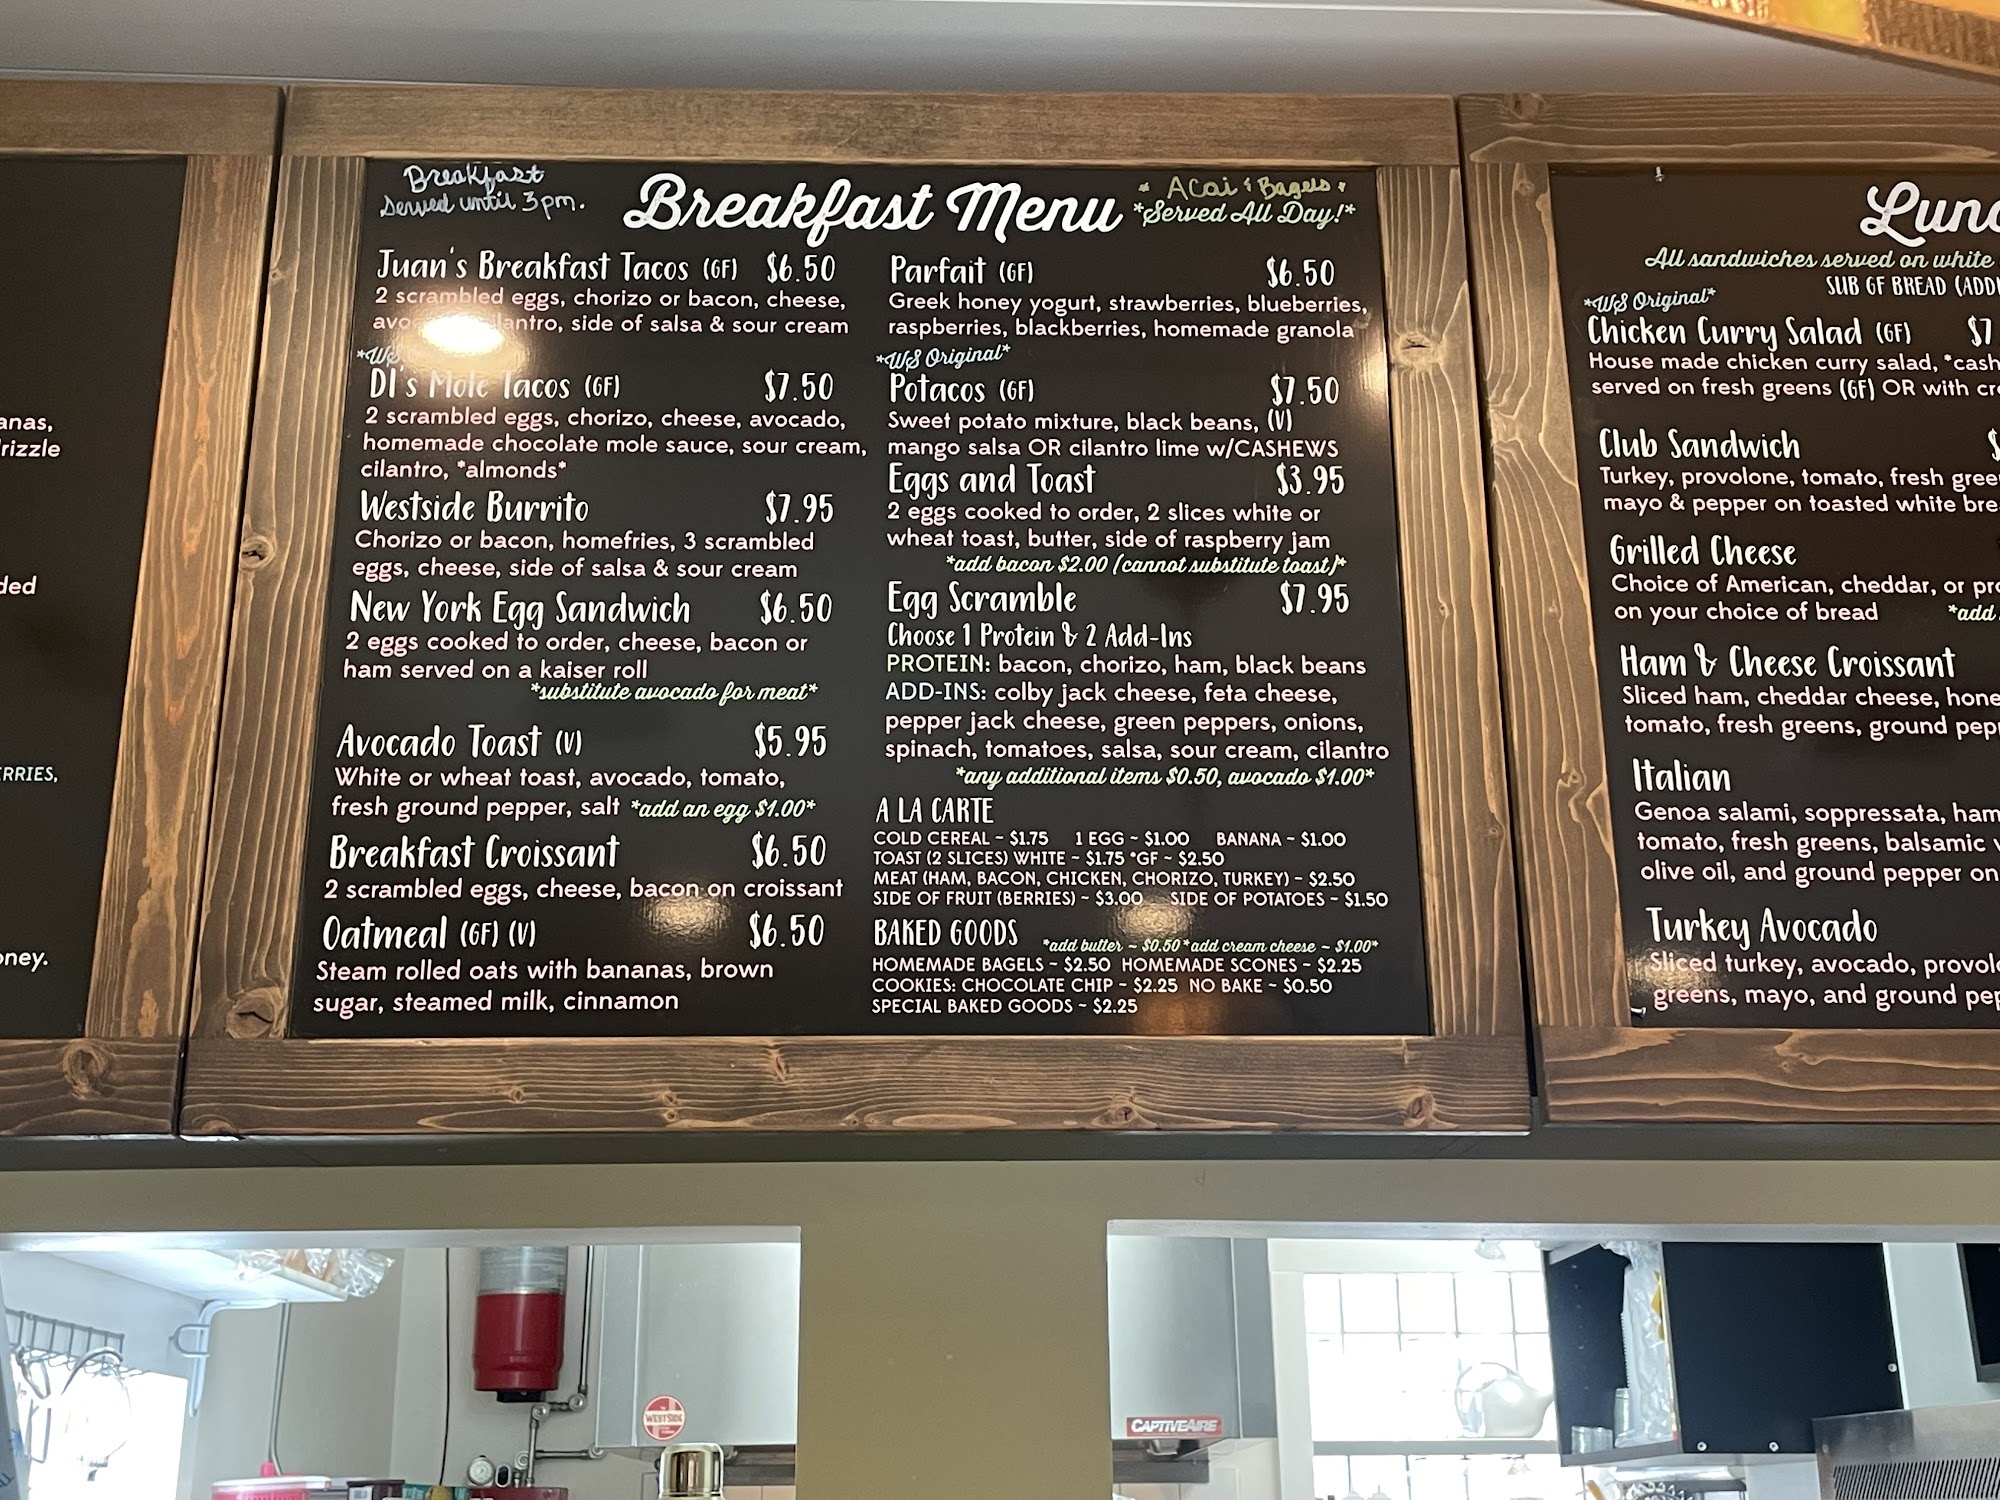 anas,
rizzle
ded
ERRIES,
oney.
Breakfast
Served until 3pm.
Breakfast Menu
* Acai & Bagels *
*Served All Day!*
Juan's Breakfast Tacos (GF) $6.50
2 scrambled eggs, chorizo or bacon, cheese,
side of salsa & sour cream
*WS
DI's Mole Tacos (GF) $7.50
2 scrambled eggs, chorizo, cheese, avocado,
homemade chocolate mole sauce, sour cream,
cilantro, *almonds*
Westside Burrito $7.95
Chorizo or bacon, homefries, 3 scrambled
eggs, cheese, side of salsa & sour cream
New York Egg Sandwich $6.50
2 eggs cooked to order, cheese, bacon or
ham served on a kaiser roll
*substitute avocado for meat*
Avocado Toast (V) $5.95
White or wheat toast, avocado, tomato,
fresh ground pepper, salt *add an egg $1.00*
Breakfast Croissant $6.50
2 scrambled eggs, cheese, bacon on croissant
Oatmeal (GF) (V) $6.50
Steam rolled oats with bananas, brown
sugar, steamed milk, cinnamon
Parfait (GF) $6.50
Greek honey yogurt, strawberries, blueberries,
raspberries, blackberries, homemade granola
*WS Original*
Potacos (GF) $7.50
Sweet potato mixture, black beans, (V)
mango salsa OR cilantro lime w/CASHEWS
Eggs and Toast $3.95
2 eggs cooked to order, 2 slices white or
wheat toast, butter, side of raspberry jam
*add bacon $2.00 (cannot substitute toast)*
Egg Scramble $7.95
Choose 1 Protein & 2 Add-Ins
PROTEIN: bacon, chorizo, ham, black beans
ADD-INS: colby jack cheese, feta cheese,
pepper jack cheese, green peppers, onions,
spinach, tomatoes, salsa, sour cream, cilantro
*any additional items $0.50, avocado $1.00*
A LA CARTE
COLD CEREAL ~ $1.75 1 EGG ~ $1.00 BANANA ~ $1.00
TOAST (2 SLICES) WHITE ~ $1.75 *GF ~ $2.50
MEAT (HAM, BACON, CHICKEN, CHORIZO, TURKEY) ~ $2.50
SIDE OF FRUIT (BERRIES) ~ $3.00 SIDE OF POTATOES ~ $1.50
BAKED GOODS *add butter ~ $0.50 *add cream cheese ~ $1.00*
HOMEMADE BAGELS ~ $2.50 HOMEMADE SCONES ~ $2.25
COOKIES: CHOCOLATE CHIP ~ $2.25 NO BAKE ~ $0.50
SPECIAL BAKED GOODS ~ $2.25
Lunc
All sandwiches served on white
SUB GF BREAD (ADD
*WS Original*
Chicken Curry Salad (GF) $7
House made chicken curry salad, *cash
served on fresh greens (GF) OR with cr
Club Sandwich $
Turkey, provolone, tomato, fresh gree
mayo & pepper on toasted white bre
Grilled Cheese
Choice of American, cheddar, or pro
on your choice of bread *add
Ham & Cheese Croissant
Sliced ham, cheddar cheese, hone
tomato, fresh greens, ground pepp
Italian
Genoa salami, soppressata, ham
tomato, fresh greens, balsamic v
olive oil, and ground pepper on
Turkey Avocado
Sliced turkey, avocado, provolo
greens, mayo, and ground pep
WESTSIDE
CAPTIVEAIRE